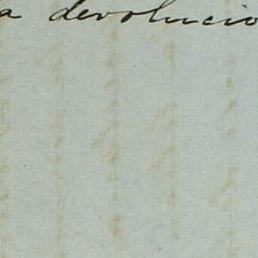 a devolucio